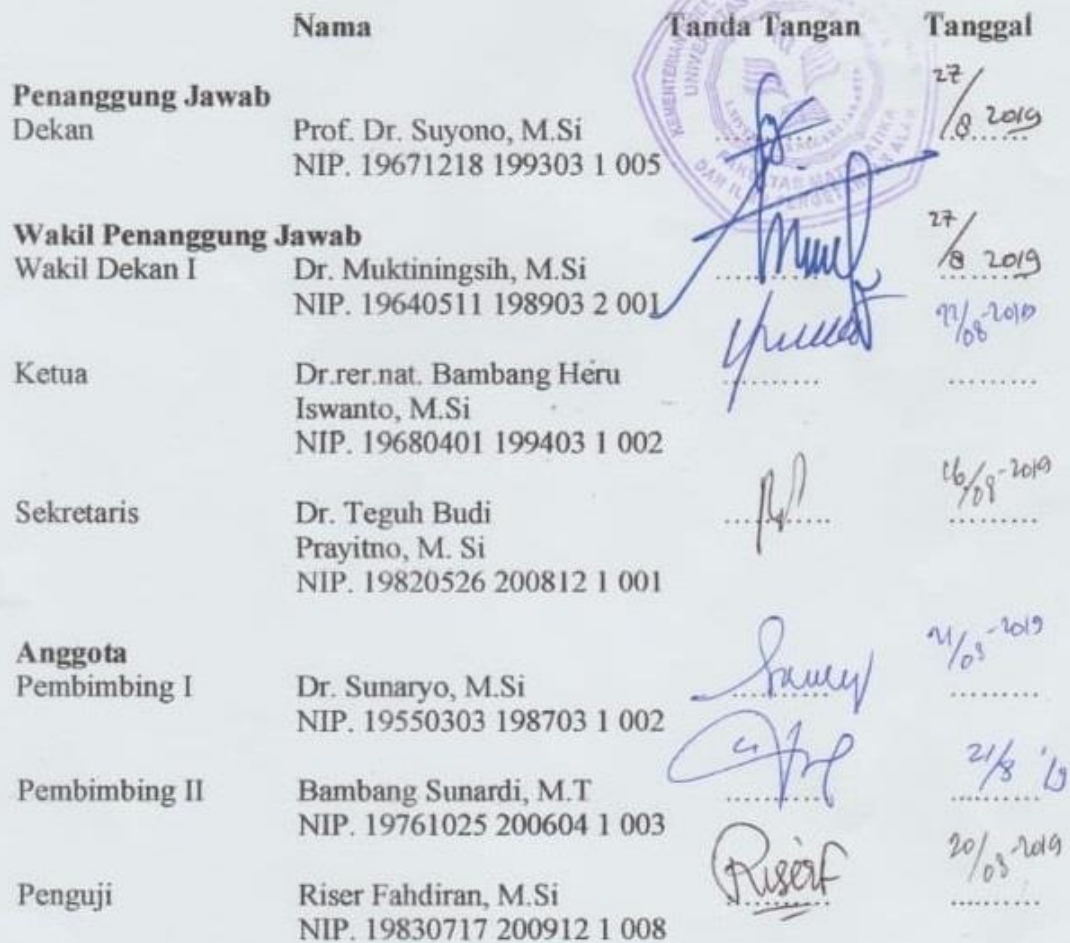 Nama Tanda Tangan Tanggal
Penanggung Jawab
27/8 2019
Dekan Prof. Dr. Suyono, M.Si
NIP. 19671218 199303 1 005
Wakil Penanggung Jawab
27/8 2019
Wakil Dekan I Dr. Muktiningsih, M.Si
NIP. 19640511 198903 2 001
Ketua Dr.rer.nat. Bambang Heru
Iswanto, M.Si
NIP. 19680401 199403 1 002
Sekretaris Dr. Teguh Budi
Prayitno, M. Si
NIP. 19820526 200812 1 001
Anggota
Pembimbing I Dr. Sunaryo, M.Si
NIP. 19550303 198703 1 002
Pembimbing II Bambang Sunardi, M.T 21/8 '19
NIP. 19761025 200604 1 003
Penguji Riser Fahdiran, M.Si
NIP. 19830717 200912 1 008